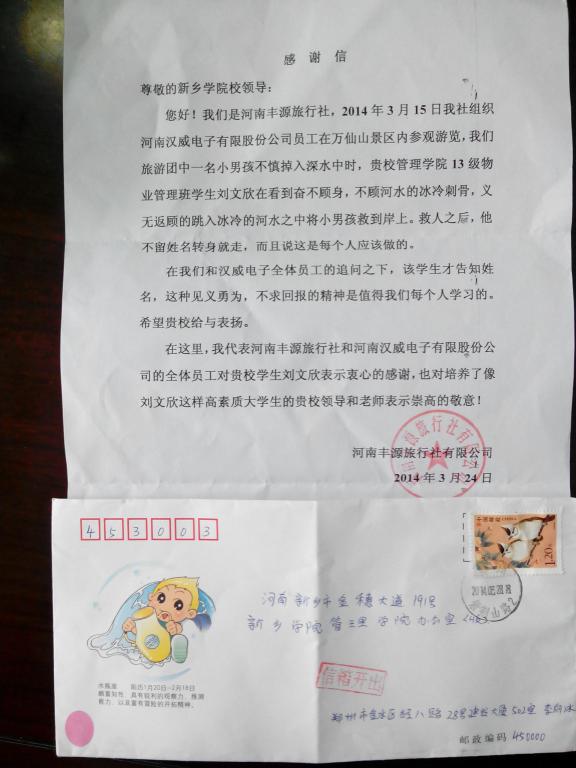 感 谢 信
尊敬的新乡学院校领导：
您好！我们是河南丰源旅行社，2014 年 3 月 15 日我社组织
河南汉威电子有限股份公司员工在万仙山景区内参观游览，我们
旅游团中一名小男孩不慎掉入深水中时，贵校管理学院 13 级物
业管理班学生刘文欣在看到奋不顾身，不顾河水的冰冷刺骨，义
无返顾的跳入冰冷的河水之中将小男孩救到岸上。救人之后，他
不留姓名转身就走，而且说这是每个人应该做的。
在我们和汉威电子全体员工的追问之下，该学生才告知姓
名，这种见义勇为，不求回报的精神是值得我们每个人学习的。
希望贵校给与表扬。
在这里，我代表河南丰源旅行社和河南汉威电子有限股份公
司的全体员工对贵校学生刘文欣表示衷心的感谢，也对培养了像
刘文欣这样高素质大学生的贵校领导和老师表示崇高的敬意！
河南丰源旅行社有限公司
2014 年 3 月 24 日
453003
中国邮政
1.20元
河南新乡市金穗大道191号
新乡学院管理学院办公室（收）
信箱开出
水瓶座 阳历1月20日-2月18日
颇富知性，具有锐利的观察力、推测
能力，以及富有冒险的开拓精神。
郑州市金水区经八路28号 大厦502室
邮政编码 450000